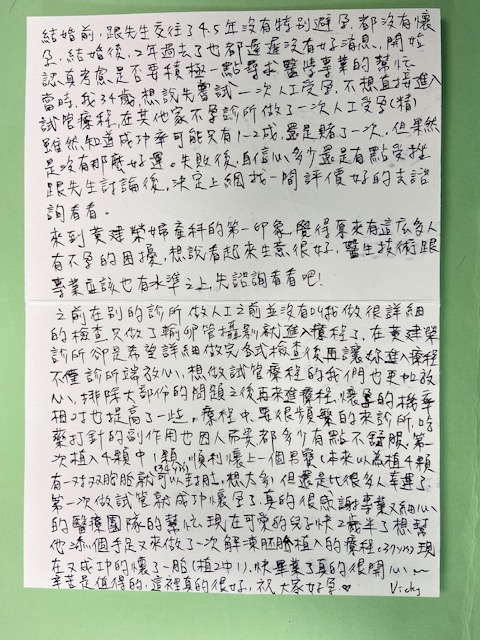 結婚前,跟先生交往了4.5年沒有特別避孕,都沒有懷
孕,結婚後,2年過去了也都遲遲沒有好消息,開始
認真考慮是否要積極一點尋求醫學專業的幫忙
當時,我34歲,想說先嘗試一次人工受孕,不想直接進入
試管療程,在其他家不孕診所做了一次人工受孕(精)
雖然知道成功率可能只有1~2成,還是賭了一次,但果然
是沒有那麼好運。失敗後,自信心多少還是有點受挫
跟先生討論後,決定上網找一間評價好的去諮
詢看看。
來到黃建榮婦產科的第一印象,覺得原來有這広多人
有不孕的困擾,想說看起來生意很好,醫生技術跟
專業应該也有水準之上,先諮詢看看吧!
之前在別的診所做人工之前並沒有叫我做很詳細
的檢查只做了輸卵管攝影就進入療程了,在黃建榮
診所卻是希望詳細做完各式檢查後再讓妳進入療程
不僅診所端放心,想做試管療程的我們也更加放
心,排除大部份的問題之後再來進療程,懷孕的機率
相对也提高了一些,療程中要很頻繁的來診所,吃
藥打針的副作用也因人而異都多少有點不舒服,第
一次植入4顆中1顆,順利懷上一個男寶(本來以為植4顆
有一对双胞胎就可以封肚,想太多)但還是比很多人幸運了
第一次做試管就成功懷孕了,真的很感謝專業又細心
的醫療團隊的幫忙,現在可愛的兒子快2歲半了想幫
他添個手足又來做了一次解凍胚胎植入的療程,現
在又成功的懷了一胎(植2中1),快畢業了真的很開心~
辛苦是值得的,這裡真的很好,祝大家好孕♥ Vicky